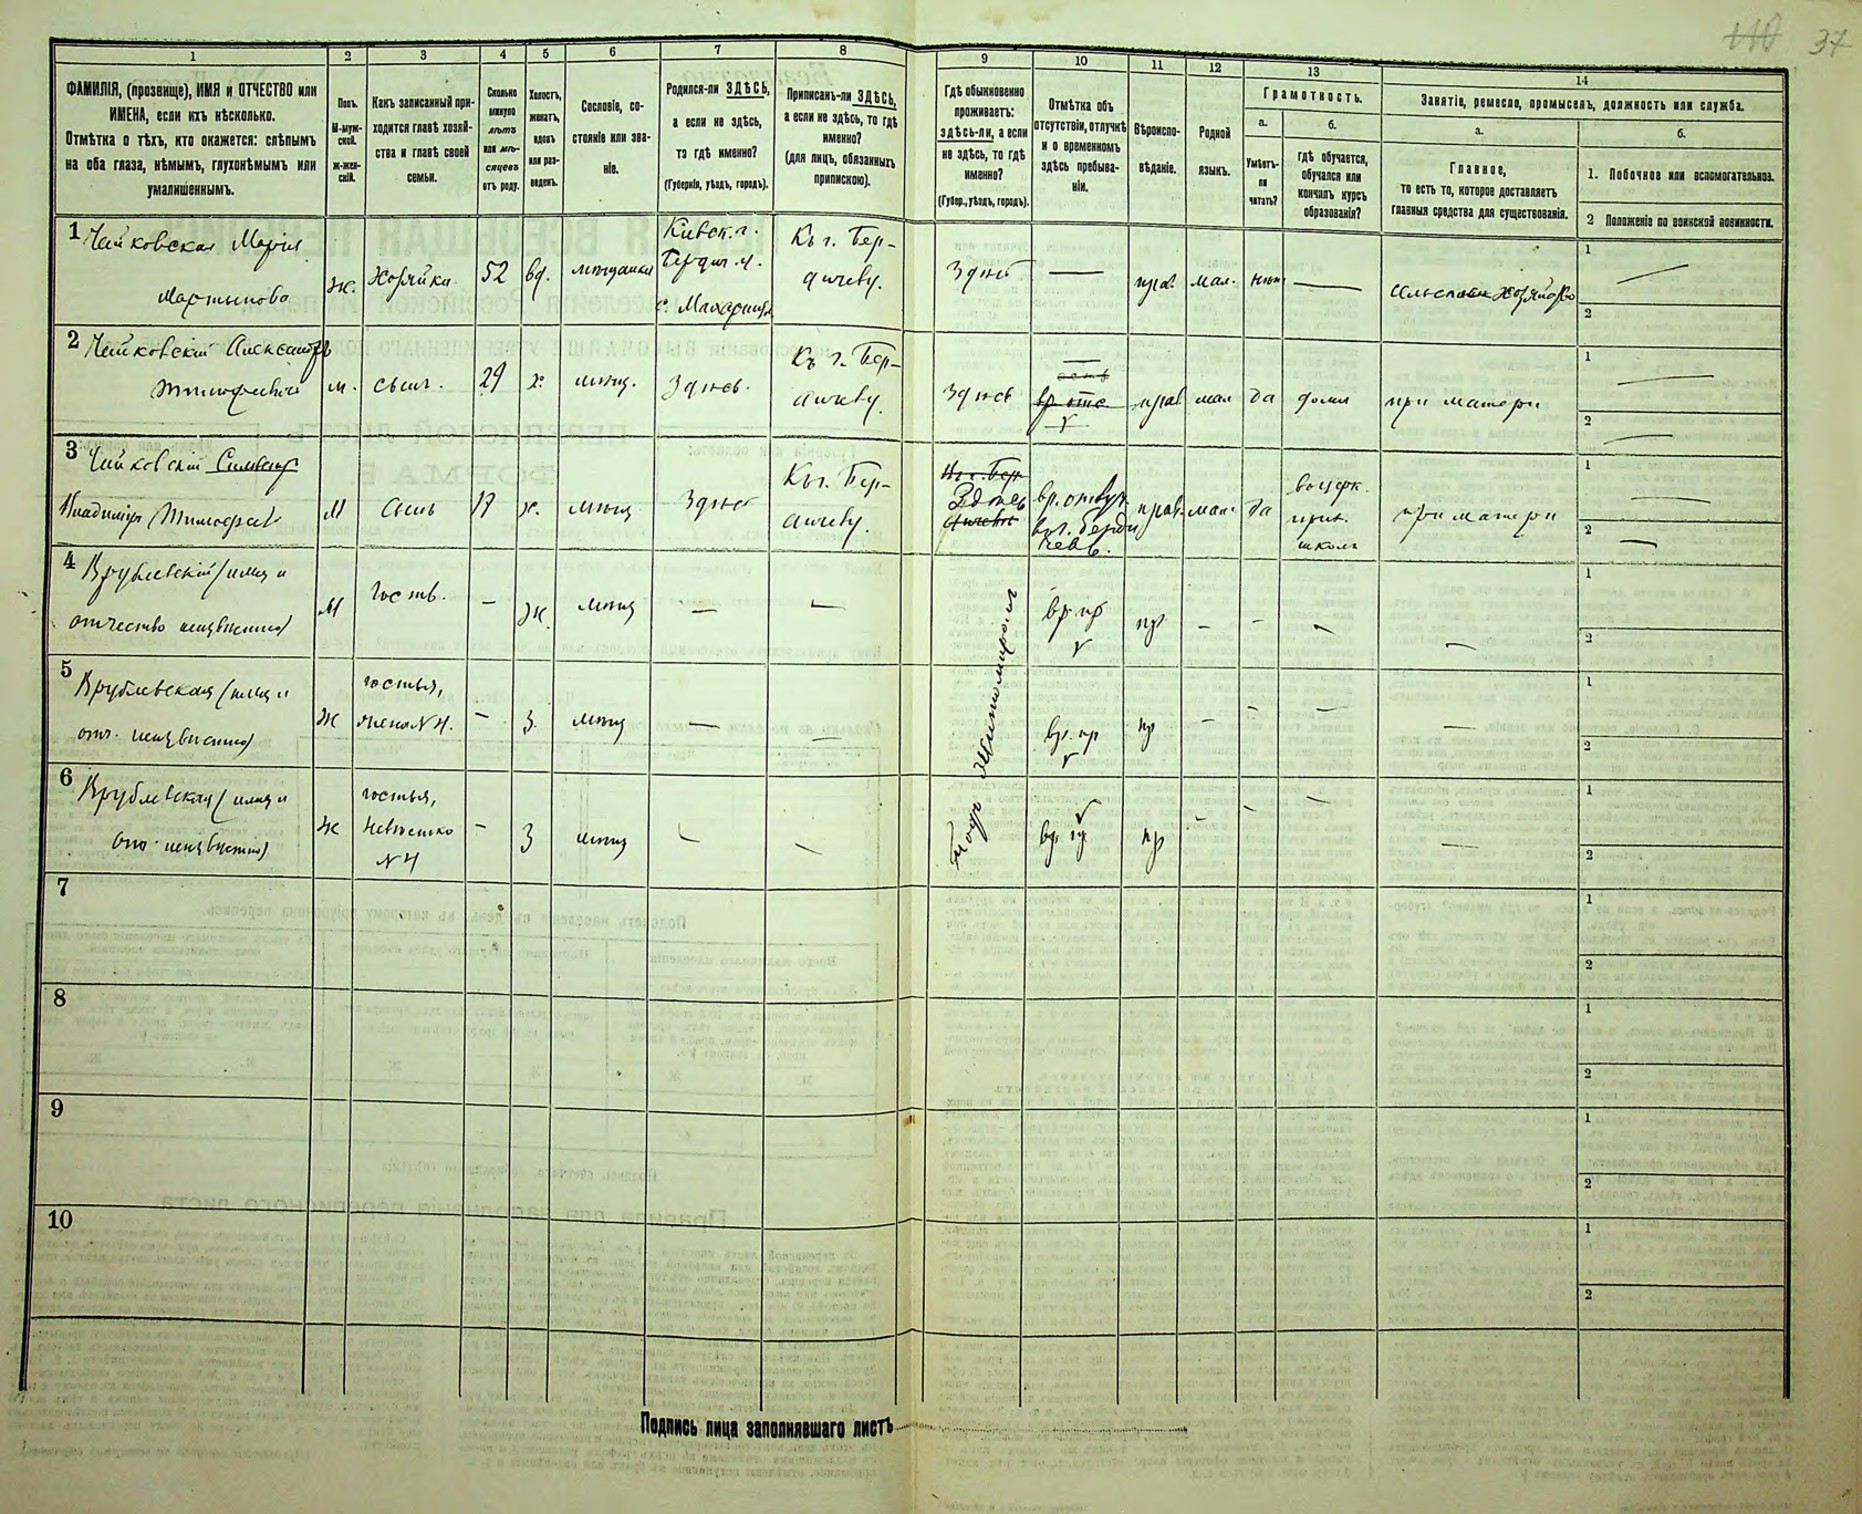 110 37
1 2 3 4 5 6 7 8 9 10 11 12 13 14
ФАМИЛІЯ, (прозвище), ИМЯ и ОТЧЕСТВО или
ИМЕНА, если ихъ нѣсколько.
Отмѣтка о тѣхъ, кто окажется: слѣпымъ
на оба глаза, нѣмымъ, глухонѣмымъ или
умалишеннымъ.
Полъ.
М-муж-
ской.
ж-жен-
скій.
Какъ записанный при-
ходится главѣ хозяй-
ства и главѣ своей
семьи.
Сколько
минуло
лѣтъ
или мѣ-
сяцевъ
отъ роду.
Холостъ,
женатъ,
вдовъ
или раз-
веденъ.
Сословіе, со-
стояніе или зва-
ніе.
Родился-ли ЗДѢСЬ,
а если не здѣсь,
то гдѣ именно?
(Губернія, уѣздъ, городъ).
Приписанъ-ли ЗДѢСЬ,
а если не здѣсь, то гдѣ
именно?
(для лицъ, обязанныхъ
припискою).
Гдѣ обыкновенно
проживаетъ:
здѣсь-ли, а если
не здѣсь, то гдѣ
именно?
(Губер., уѣздъ, городъ).
Отмѣтка объ
отсутствіи, отлучкѣ
и о временномъ
здѣсь пребыва-
ніи.
Вѣроиспо-
вѣданіе.
Родной
языкъ.
Грамотность.
а.
Умѣетъ-
ли
читать?
б.
гдѣ обучается,
обучался или
кончилъ курсъ
образованія?
Занятіе, ремесло, промыселъ, должность или служба.
а.
Главное,
то есть то, которое доставляетъ
главныя средства для существованія.
б.
1. Побочное или вспомогательное.
2 Положеніе по воинской повинности.
1 Чайковская Марія
Мартынова
Ж. Хозяйка 52 вд. мещанка
Кіевск. г.
Бердич. у.
с. Махаринцы
Къ г. Бер-
дичеву.
Здѣсь — прав. мал. нѣтъ — сельское хозяйство
1 —
2
2 Чайковскій Александръ
Тимофеевичъ
м. сынъ. 29 х. мѣщ. Здѣсь.
Къ г. Бер-
дичеву.
Здѣсь
вр. отс
прав мал да дома при матери
1 —
2 —
3 Чайковскій
Владимиръ Тимофеев
М сынъ 17 х. мѣщ Здѣсь
Къ г. Бер-
дичеву.
Здѣсь
вр. отлуч.
въ г. Берди
чевѣ.
прав. мал. да
въ церк.
прих.
школѣ
при матери
1 —
2 —
4 Врублевскій (имя и
отчество неизвѣстно)
М гость. — Ж. мѣщ — —
вр. пр
пр — — — —
1
2
5 Врублевская (имя и
отч. неизвѣстно)
Ж гостья,
жена N 4.
— З. мѣщ — —
вр. пр
пр — — — —
1
2
6 Врублевская (имя и
отч. неизвѣстно)
Ж гостья,
невѣстка
N 4
— З мѣщ — —
вр. пр
пр — — — —
1
2
Житомиръ
7
1
2
8
1
2
9
1
2
10
1
2
Подпись лица заполнявшаго листъ